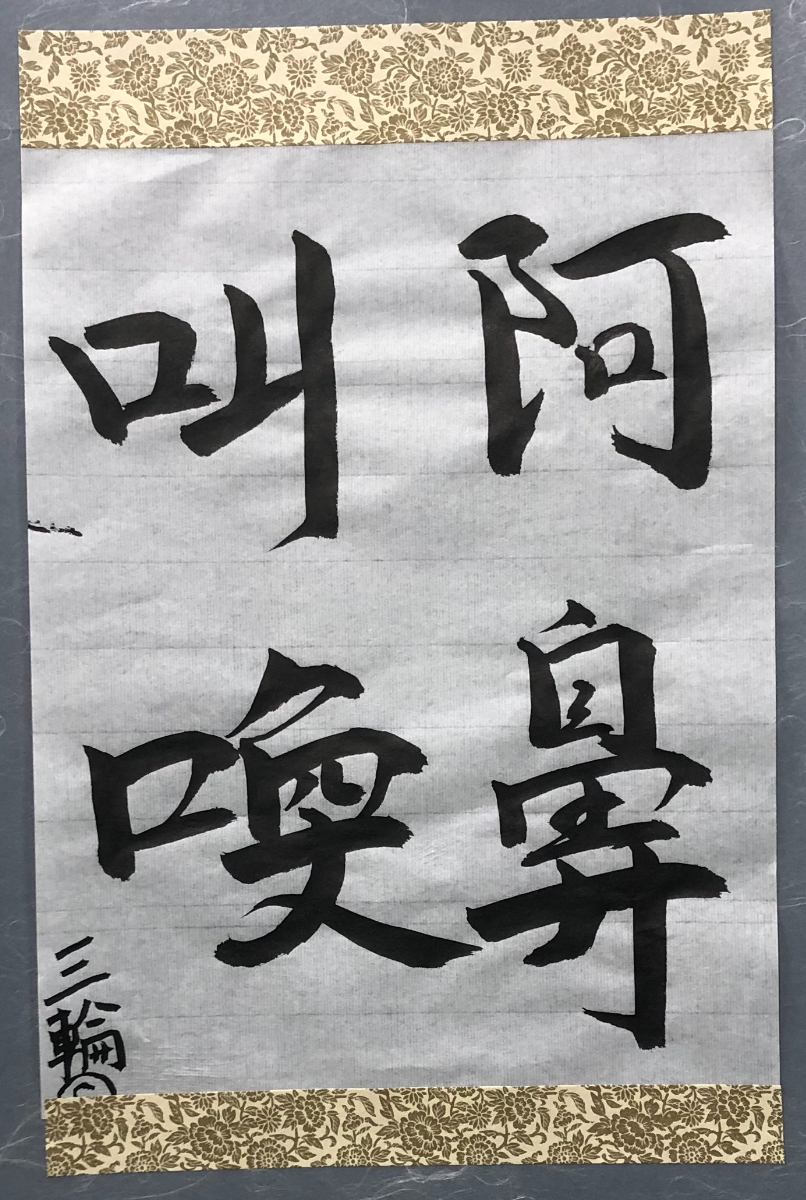 阿鼻
叫喚
三輪